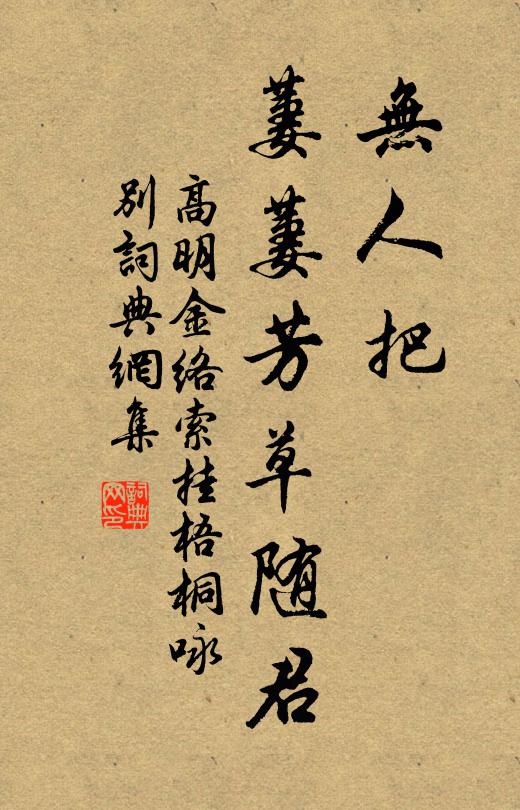 無人把
萋萋芳草随君
高明金絡索挂梧桐咏
别詞典網集
詞典
网印